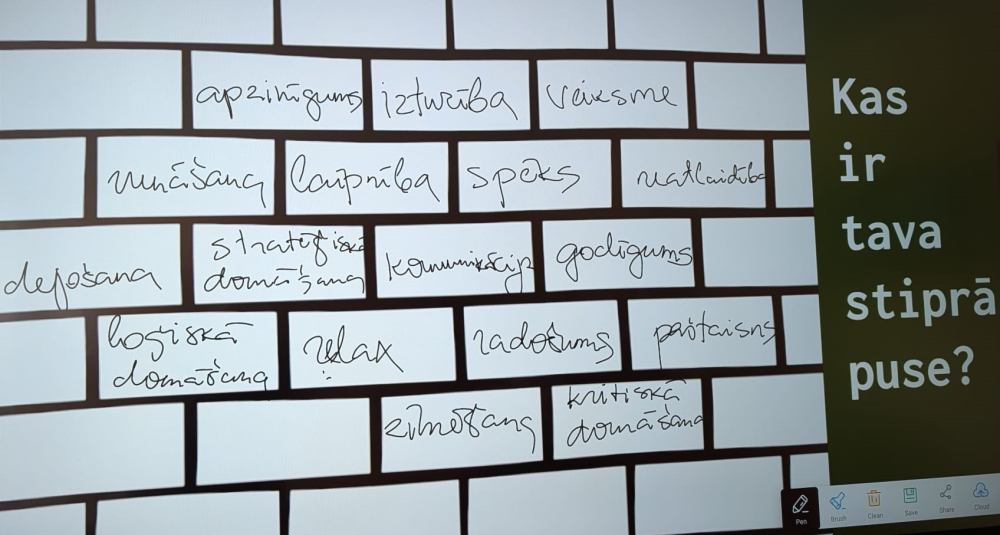 apzinīgums izturība veiksme
runāšana laipnība spēks neatlaidība
dejošana stratēģiskā domāšana komunikācija godīgums
loģiskā domāšana relax radošums paštaisns
zīmēšana kritiskā domāšana
Kas
ir
tava
stiprā
puse?
Pen Brush Clean Save Share Cloud